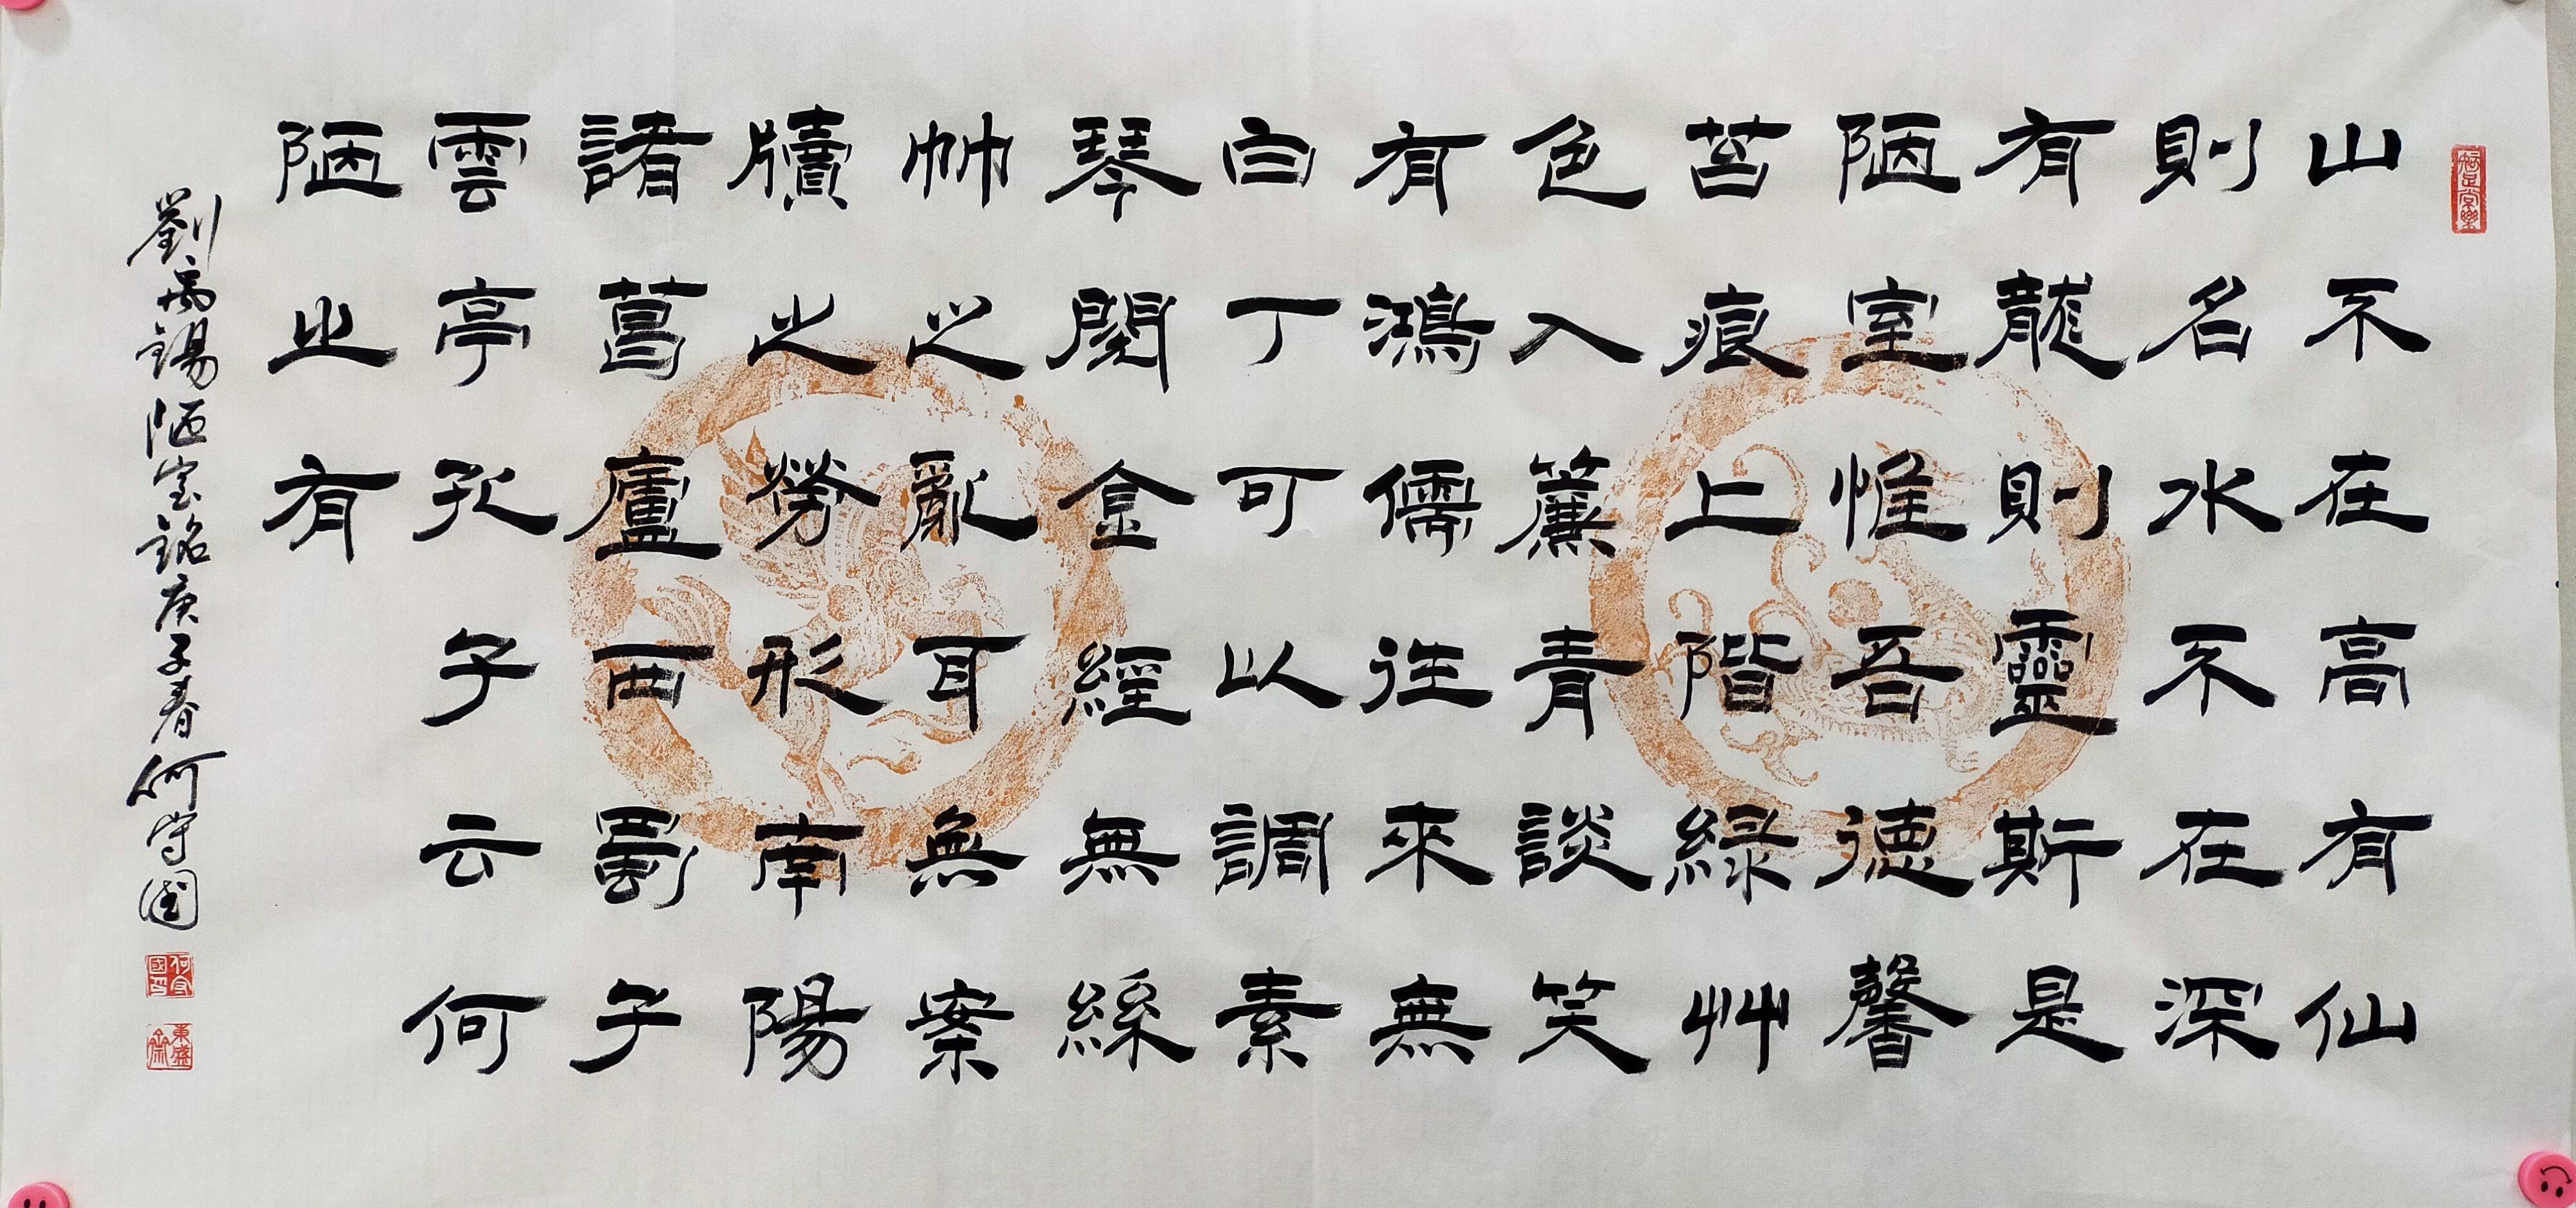 知足常樂
山不在高有仙
則名水不在深
有龍則靈斯是
陋室惟吾德馨
苔痕上階綠艸
色入簾青談笑
有鴻儒往來無
白丁可以調素
琴閱金經無絲
竹之亂耳無案
牘之勞形南陽
諸葛廬西蜀子
雲亭孔子云何
陋之有
劉禹錫陋室銘庚子春何守國
何守國印